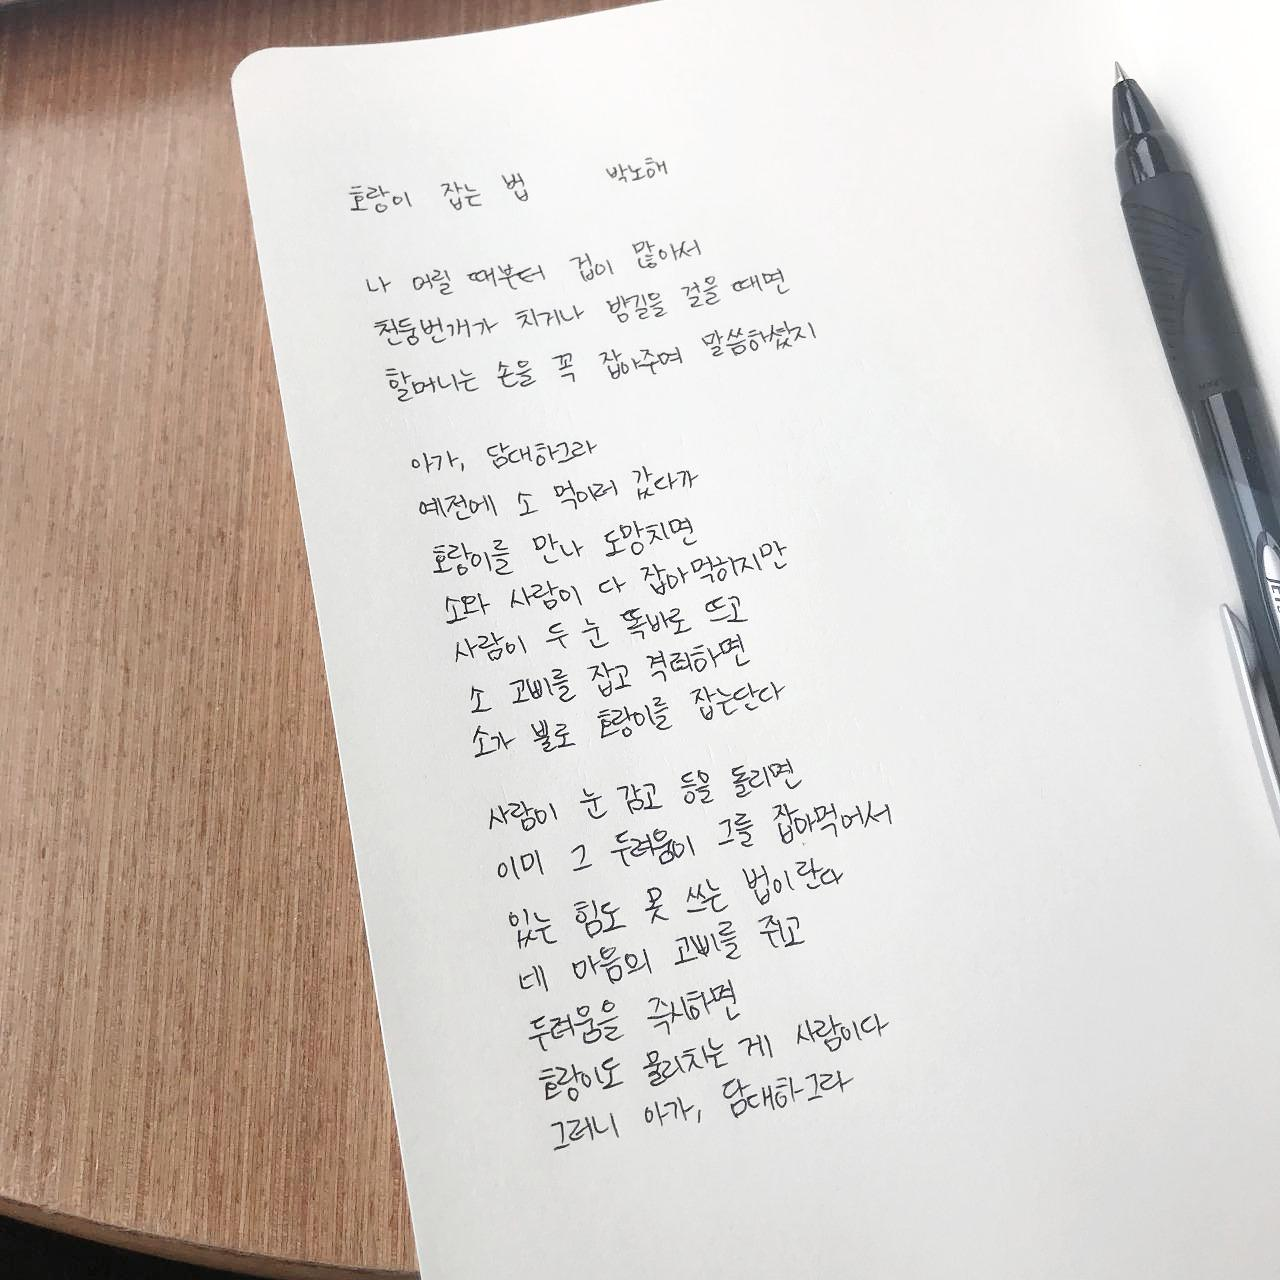 호랑이 잡는 법 박노해
나 어릴 때부터 겁이 많아서
천둥번개가 치거나 밤길을 걸을 때면
할머니는 손을 꼭 잡아주며 말씀하셨지
아가, 담대하그라
예전에 소 먹이러 갔다가
호랑이를 만나 도망치면
소와 사람이 다 잡아먹히지만
사람이 두 눈 똑바로 뜨고
소 고삐를 잡고 격려하면
소가 뿔로 호랑이를 잡는단다
사람이 눈 감고 등을 돌리면
이미 그 두려움이 그를 잡아먹어서
있는 힘도 못 쓰는 법이란다
네 마음의 고삐를 쥐고
두려움을 직시하면
호랑이도 물리치는 게 사람이다
그러니 아가, 담대하그라